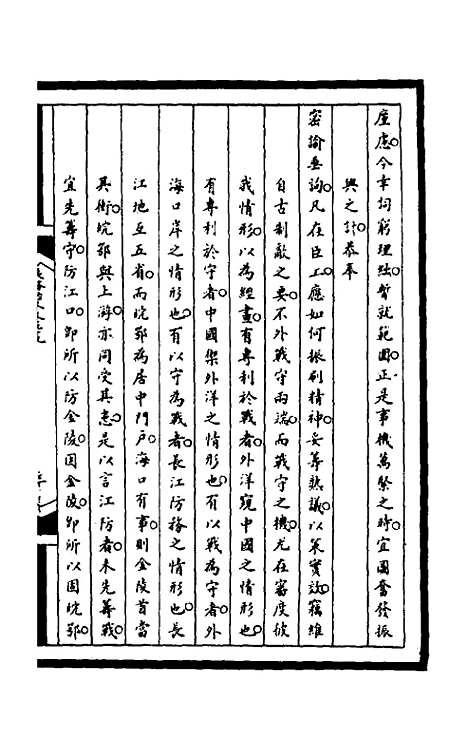 廑慮今幸詞窮理絀暫就範圍正是事機萬緊之時宜圖奮發振
興之計恭奉
密諭垂詢凡在臣工應如何振刷精神妥籌熟議以策實效竊維
自古制敵之要不外戰守兩端而戰守之機尤在審度彼
我情形以為經畫有專利於戰者外洋窺中國之情形也
有專利於守者中國禦外洋之情形也有以戰為守者外
海口岸之情形也有以守為戰者長江防務之情形也長
江地亙五省而皖鄂為居中門戶海口有事則金陵首當
其衝皖鄂與上游亦同受其恚是以言江防者未先籌戰
宜先籌守防江口卽所以防金陵固金陵卽所以固皖鄂